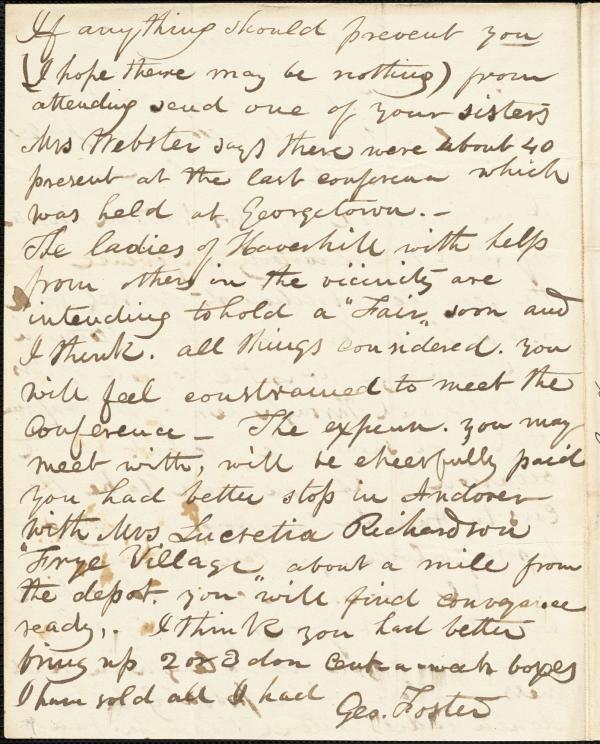 If anything should prevent you
(I hope there may be nothing) from
attending send one of your sisters
Mrs Webster says there were about 40
present at the last conference which
was held at Georgetown. –
The ladies of Haverhill with help
from others in the vicinity are
intending to hold a "Fair" soon and
I think. all things considered. you
will feel constrained to meet the
Conference – The expense. you may
meet with, will be cheerfully paid
You had better stop in Andover
with Mrs Lucretia Richardson
"Frye Village" about a mile from
the depot. you will find conveyance
ready,. I think you had better
bring up 2 or 3 doz Cent-a-week boxes
I have sold all I had
Geo. Foster